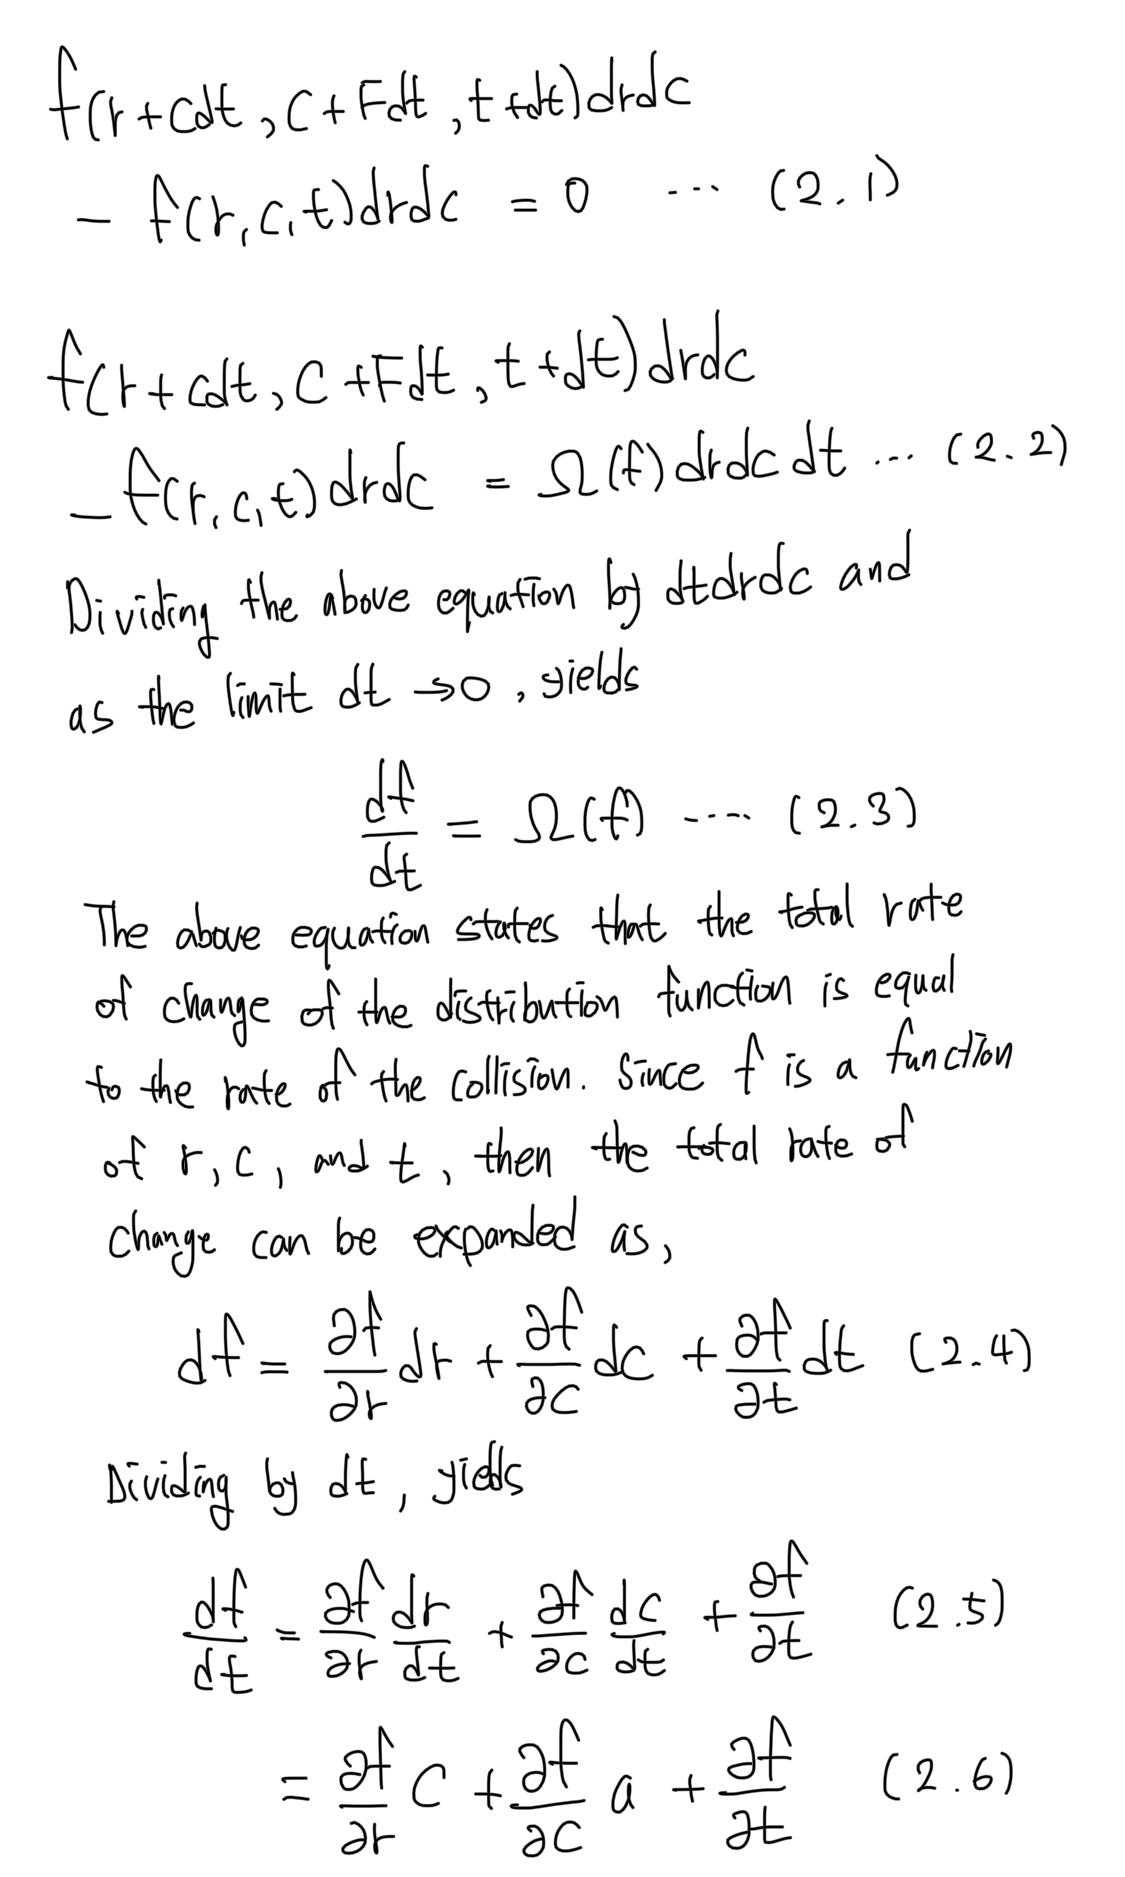 f(r+cdt, c+Fdt, t+dt)drdc
- f(r,c,t)drdc = 0 ... (2.1)
f(r+cdt, c+Fdt, t+dt)drdc
- f(r,c,t)drdc = Ω(f)drdcdt ... (2.2)
Dividing the above equation by dtdrdc and
as the limit dt → 0, yields
df/dt = Ω(f) .... (2.3)
The above equation states that the total rate
of change of the distribution function is equal
to the rate of the collision. Since f is a function
of r, c, and t, then the total rate of
change can be expanded as,
df = ∂f/∂r dr + ∂f/∂c dc + ∂f/∂t dt (2.4)
Dividing by dt, yields
df/dt = ∂f/∂r dr/dt + ∂f/∂c dc/dt + ∂f/∂t (2.5)
= ∂f/∂r c + ∂f/∂c a + ∂f/∂t (2.6)